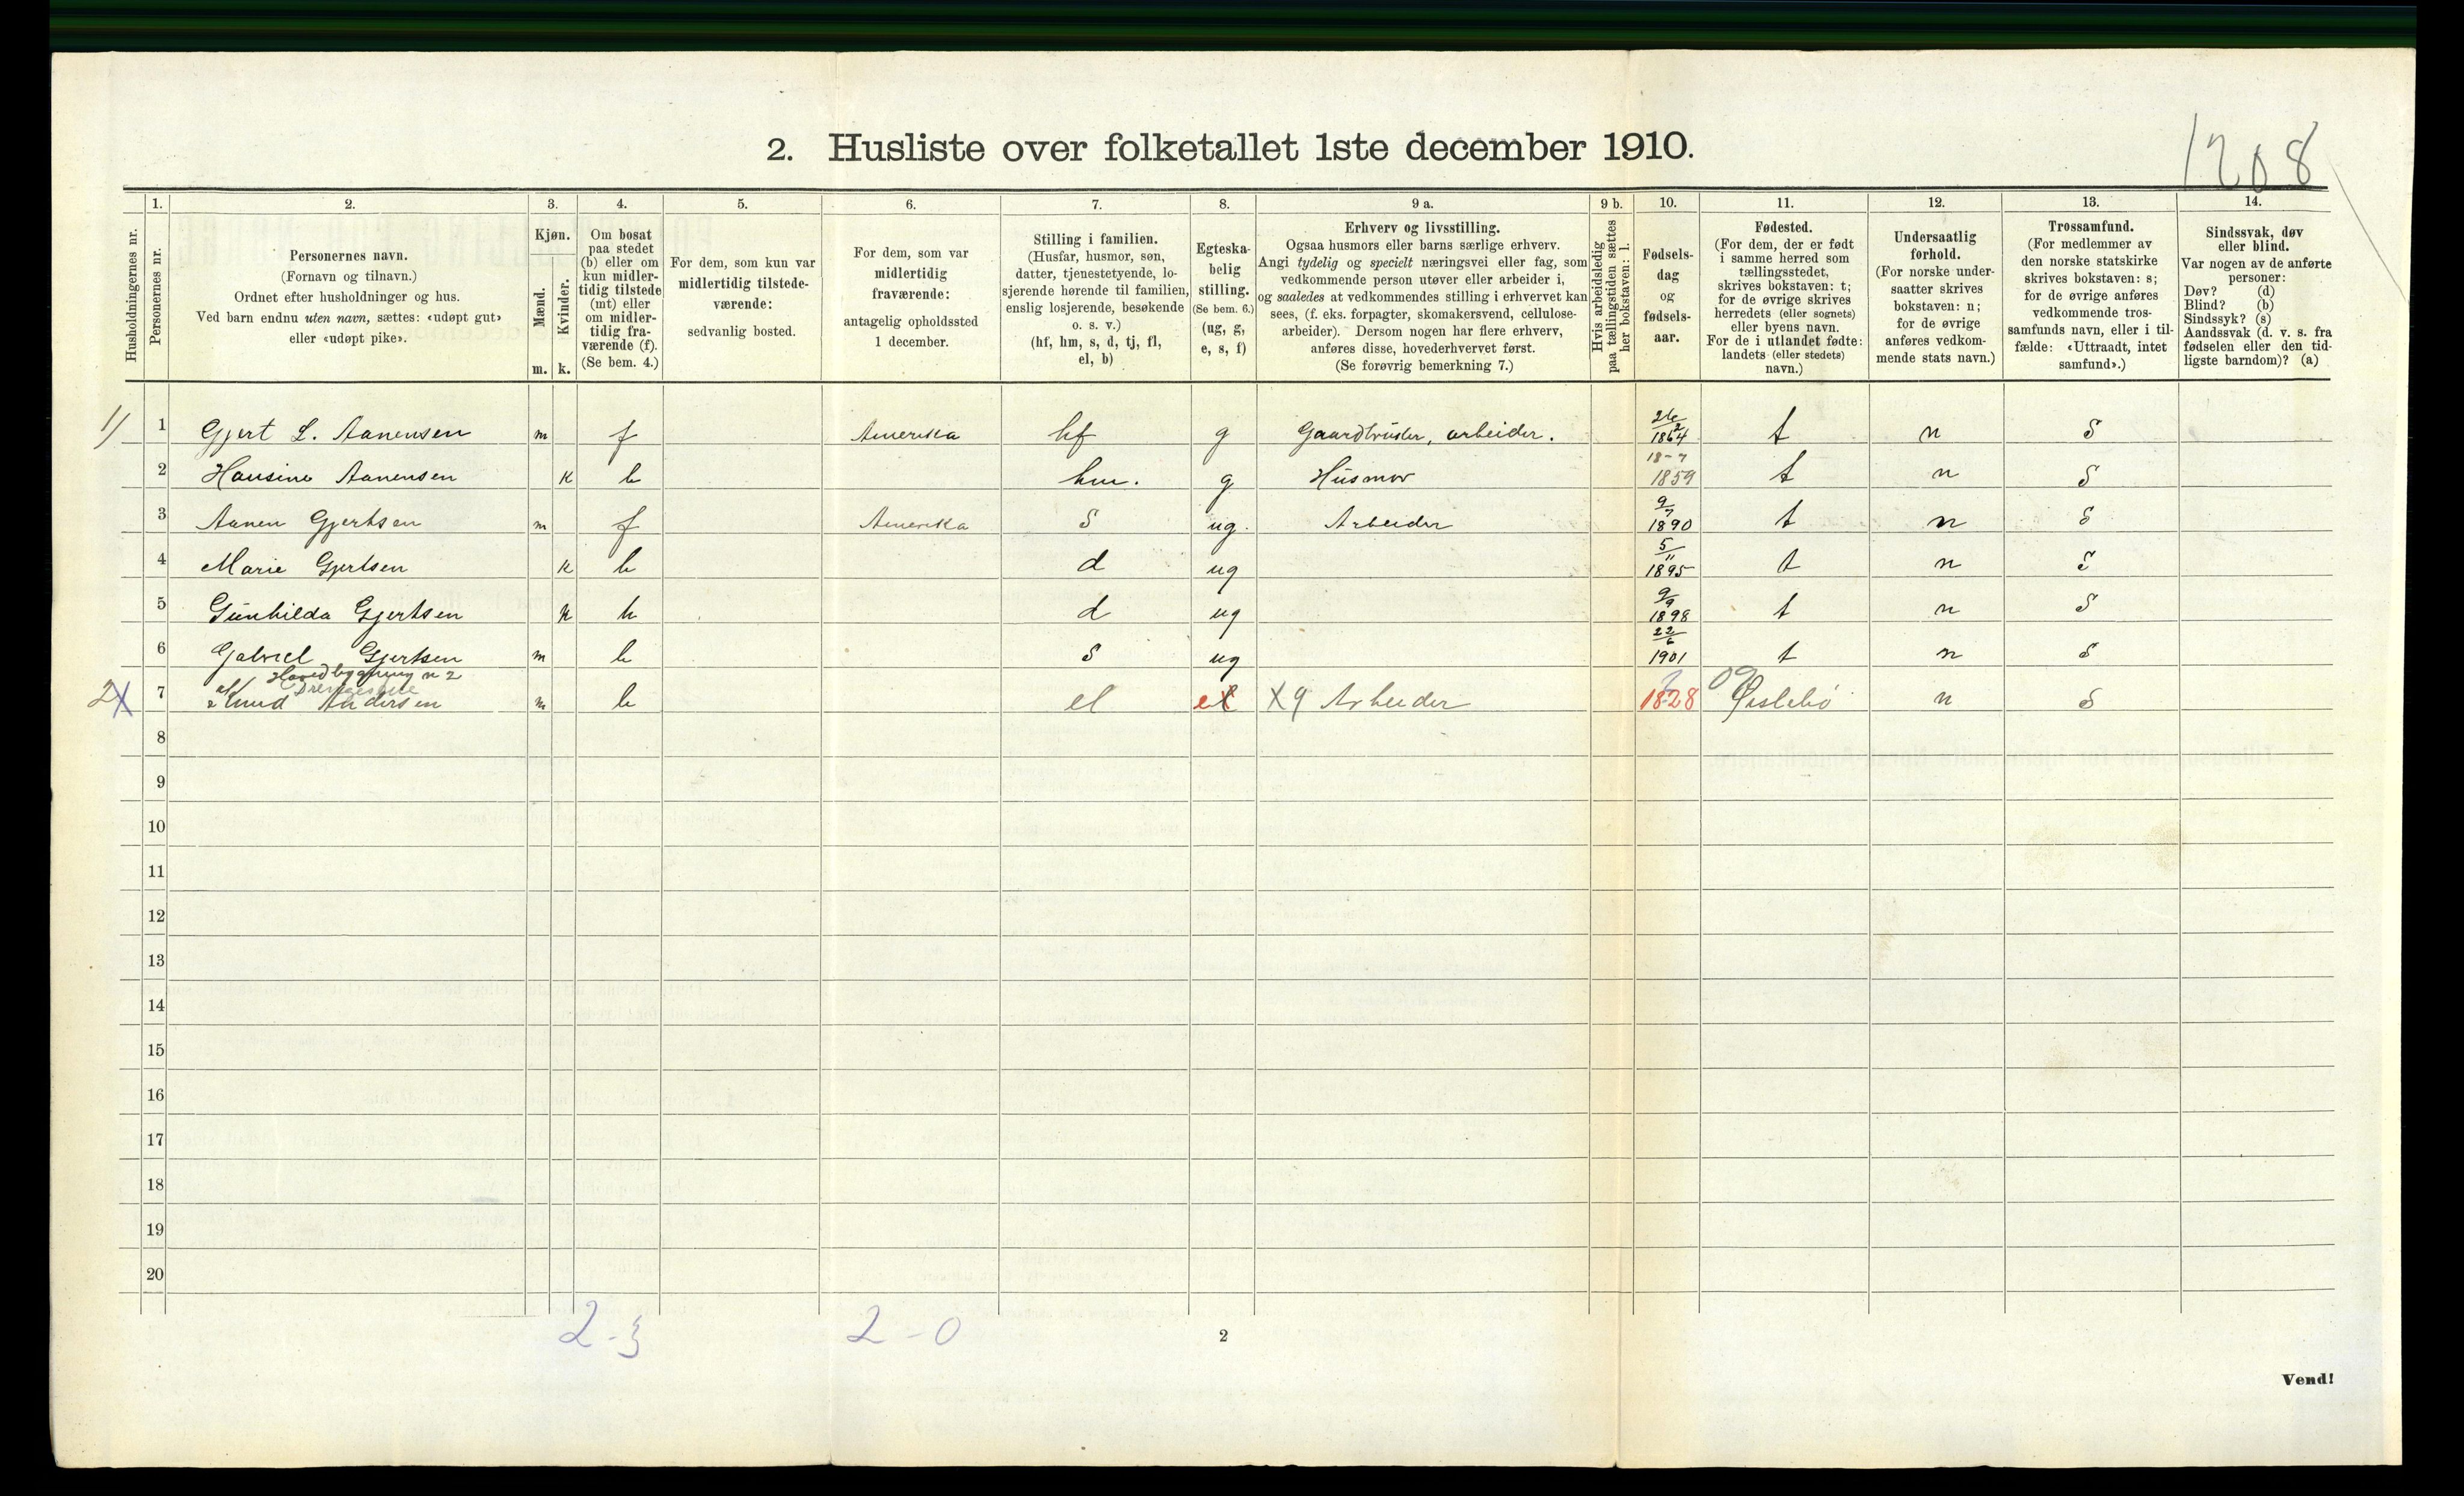 1208
2. Husliste over folketallet 1ste december 1910.
Husholdningernes nr.
1. Personernes nr.
2. Personernes navn.
(Fornavn og tilnavn.)
Ordnet efter husholdninger og hus.
Ved barn endnu uten navn, sættes: «udøpt gut»
eller «udøpt pike».
3. Kjøn.
Mænd. m.
Kvinder. k.
4. Om bosat
paa stedet
(b) eller om
kun midler-
tidig tilstede
(mt) eller
om midler-
tidig fra-
værende (f).
(Se bem. 4.)
5. For dem, som kun var
midlertidig tilstede-
værende:
sedvanlig bosted.
6. For dem, som var
midlertidig
fraværende:
antagelig opholdssted
1 december.
7. Stilling i familien.
(Husfar, husmor, søn,
datter, tjenestetyende, lo-
sjerende hørende til familien,
enslig losjerende, besøkende
o. s. v.)
(hf, hm, s, d, tj, fl,
el, b)
8. Egteska-
belig
stilling.
(Se bem. 6.)
(ug, g,
e, s, f)
9 a. Erhverv og livsstilling.
Ogsaa husmors eller barns særlige erhverv.
Angi tydelig og specielt næringsvei eller fag, som
vedkommende person utøver eller arbeider i,
og saaledes at vedkommendes stilling i erhvervet kan
sees, (f. eks. forpagter, skomakersvend, cellulose-
arbeider). Dersom nogen har flere erhverv,
anføres disse, hovederhvervet først.
(Se forøvrig bemerkning 7.)
9 b. Hvis arbeidsledig
paa tællingstiden sættes
her bokstaven: l.
10. Fødsels-
dag
og
fødsels-
aar.
11. Fødested.
(For dem, der er født
i samme herred som
tællingsstedet,
skrives bokstaven: t;
for de øvrige skrives
herredets (eller sognets)
eller byens navn.
For de i utlandet fødte:
landets (eller stedets)
navn.)
12. Undersaatlig
forhold.
(For norske under-
saatter skrives
bokstaven: n;
for de øvrige
anføres vedkom-
mende stats navn.)
13. Trossamfund.
(For medlemmer av
den norske statskirke
skrives bokstaven: s;
for de øvrige anføres
vedkommende tros-
samfunds navn, eller i til-
fælde: «Uttraadt, intet
samfund».)
14. Sindssvak, døv
eller blind.
Var nogen av de anførte
personer:
Døv? (d)
Blind? (b)
Sindssyk? (s)
Aandssvak (d. v. s. fra
fødselen eller den tid-
ligste barndom)? (a)
1) 1 Gjert L. Aanensen m f Amerika hf g Gaardbruker, arbeider. 26/2 1864 t n S
2 Hansine Aanensen k b hm. g Husmor 18-7 1859 t n S
3 Aanen Gjertsen m f Amerika S ug. Arbeider 9/7 1890 t n S
4 Marie Gjertsen k b d ug 5/11 1895 t n S
5 Gunhilda Gjertsen k b d ug 9/9 1898 t n S
6 Gabriel Gjertsen m b S ug 22/6 1901 t n S
Hovedbygning n 2
2X 7 Knud Andersen m b el e X9 Arbeider 1828 09 Øislebø n S
8
9
10
11
12
13
14
15
16
17
18
19
20
2-3 2-0
2
Vend!